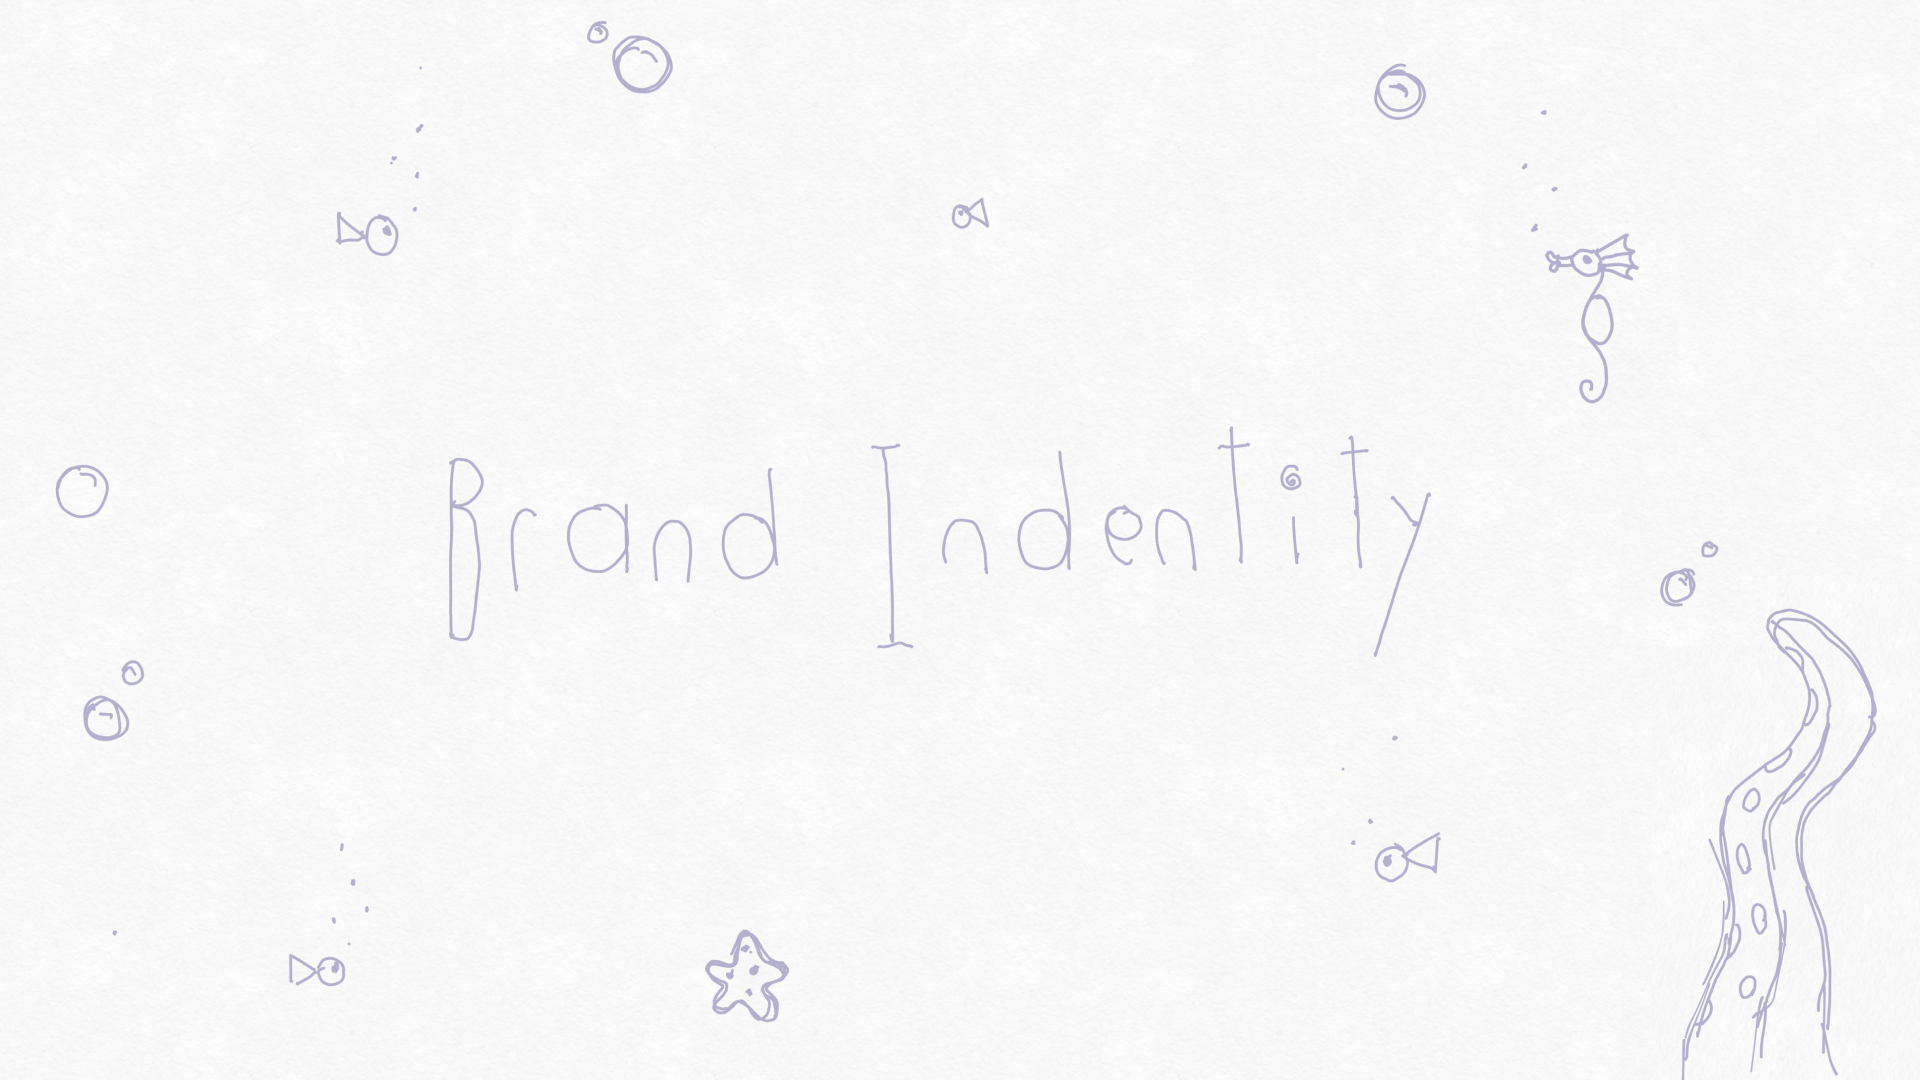 Brand Indentity